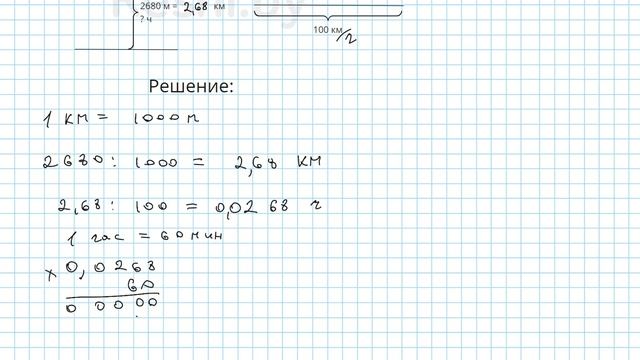 2680 м = 2,68 км
? ч
100 км/ч
Решение:
1 км = 1000 м
2680 : 1000 = 2,68 км
2,68 : 100 = 0,0268 ч
1 час = 60 мин
× 0,0268
60
0 0000